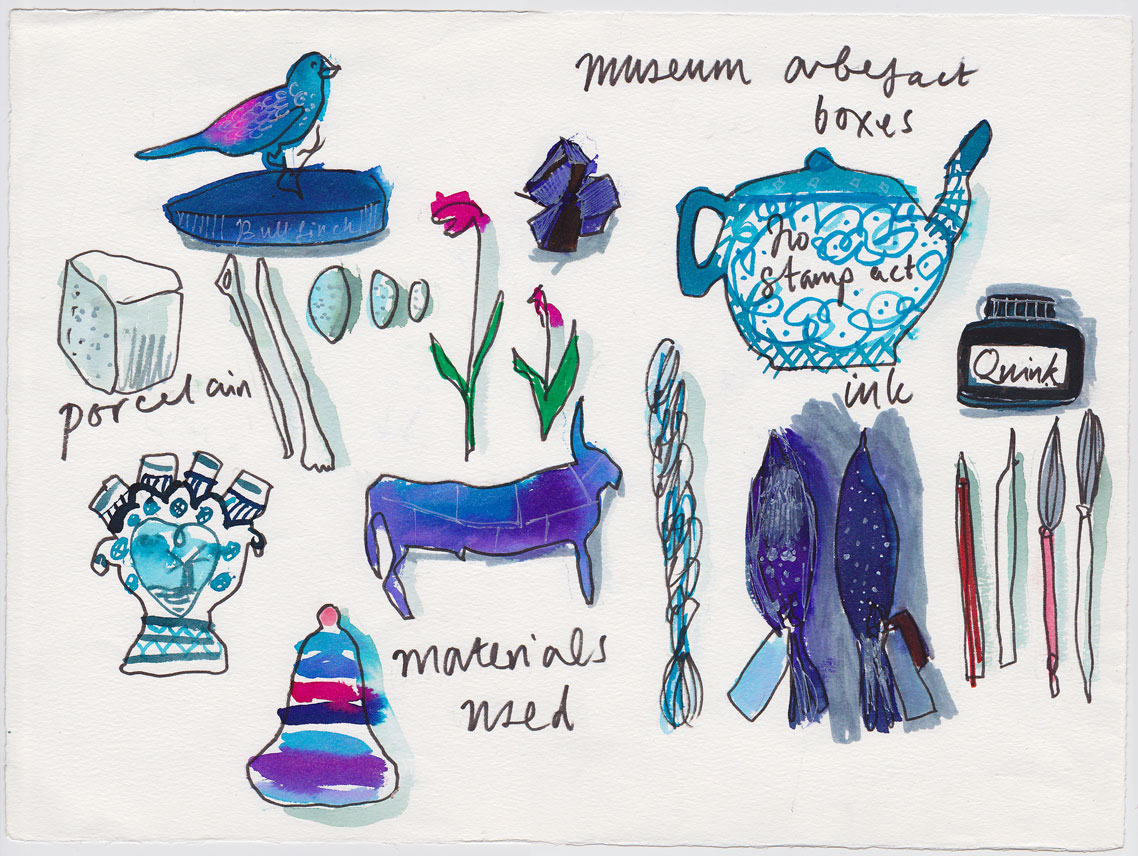 museum artefact
boxes
Bullfinch
No
stamp act
porcelain
ink
Quink
materials
used